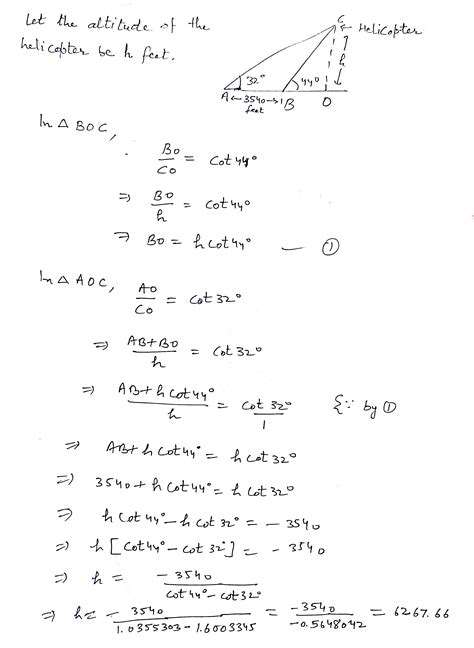 Let the altitude of the
helicopter be h feet.
C
← Helicopter
h
32°
44°
A ←3540→ B O
feet
In △ BOC,
BO/CO = cot 44°
⇒ BO/h = cot 44°
⇒ BO = h cot 44° — ①
In △ AOC, AO/CO = cot 32°
⇒ AB+BO/h = cot 32°
⇒ AB+h cot 44°/h = cot 32°/1 {∵ by ①
⇒ AB+ h cot 44° = h cot 32°
⇒ 3540 + h cot 44° = h cot 32°
⇒ h cot 44° - h cot 32° = - 3540
⇒ h [cot 44° - cot 32°] = - 3540
⇒ h = -3540/cot 44° - cot 32°
⇒ h = - 3540/1.0355303 - 1.6003345 = -3540/-0.5648042 = 6267.66